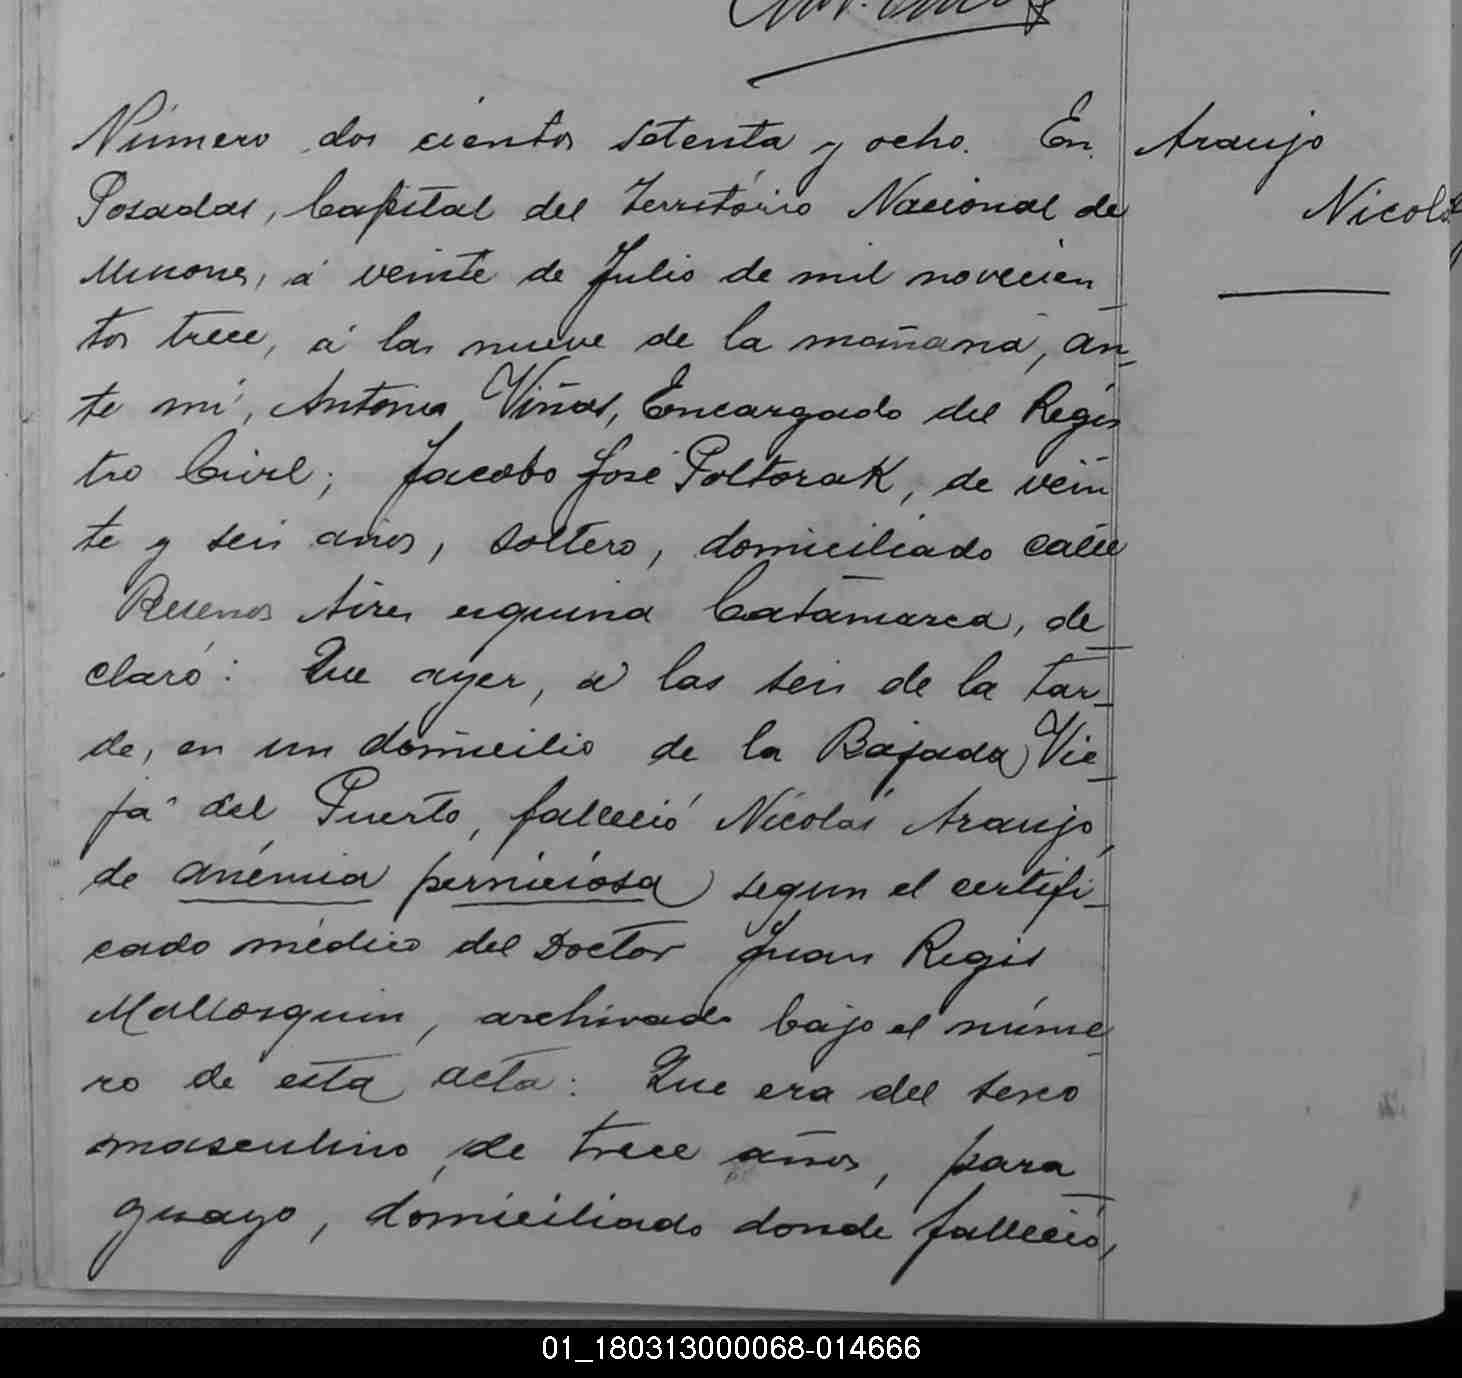 Número dos cientos setenta y ocho. En
Posadas, Capital del Território Nacional de
Misiones, á veinte de Julio de mil novecien
tos trece, á las nueve de la mañana, an
te mí, Antonio Viñas, Encargado del Regis
tro Civil; Jacobo José Poltorak, de vein
te y seis años, soltero, domiciliado calle
Buenos Aires esquina Catamarca, de
claró: Que ayer, á las seis de la tar
de, en un domicilio de la Bajada Vie
ja del Puerto, falleció Nicolás Araujo,
de anémia perniciosa segun el certifi
cado médico del Doctor Juan Regis
Mallosquin, archivado bajo el núme
ro de esta acta: Que era del sexo
masculino, de trece años, para
guayo, domiciliado donde falleció,
Araujo
Nicolás
01_180313000068-014666